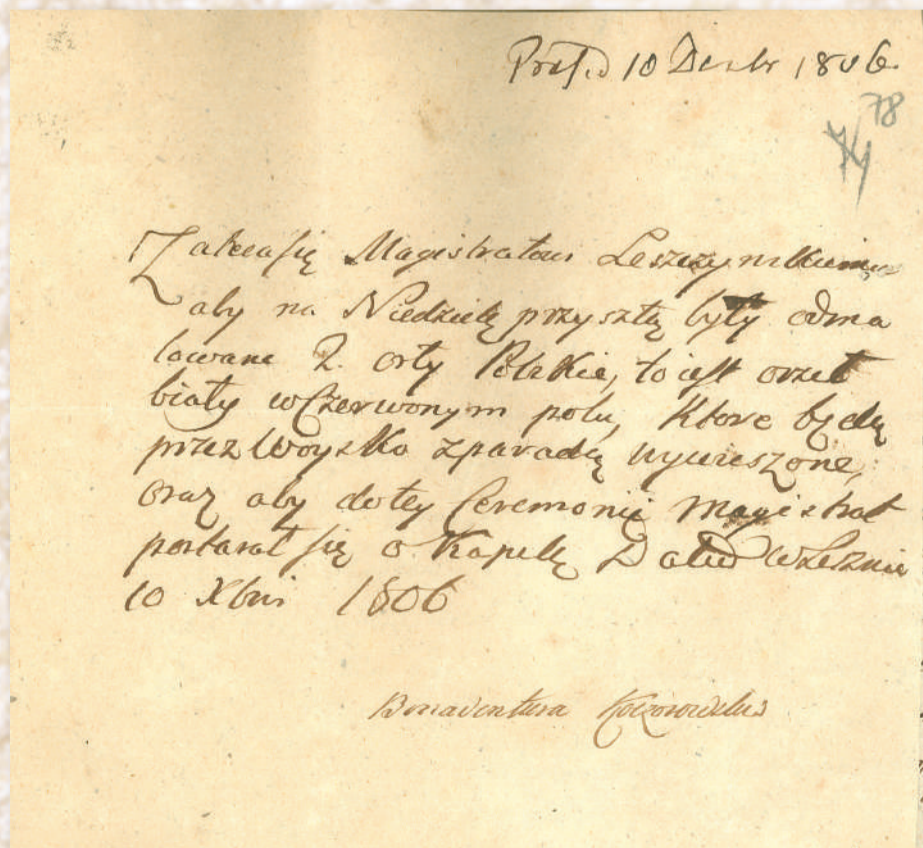 Prąs. d 10 Decbr 1806.
78
74
Zaleca się Magistratowi Leszczynskiemu
aby na Niedzielę przyszłą były odma
lowane 2. orły Polskie, to iest orzeł
biały w Czerwonym polu, Ktore będą
przez Woysko z paradą wywieszone,
oraz aby do tey Ceremonii Magistrat
postarał się o Kapelę Datū w Lesznie
10 Xbris 1806
Bonaventura Koczorowski